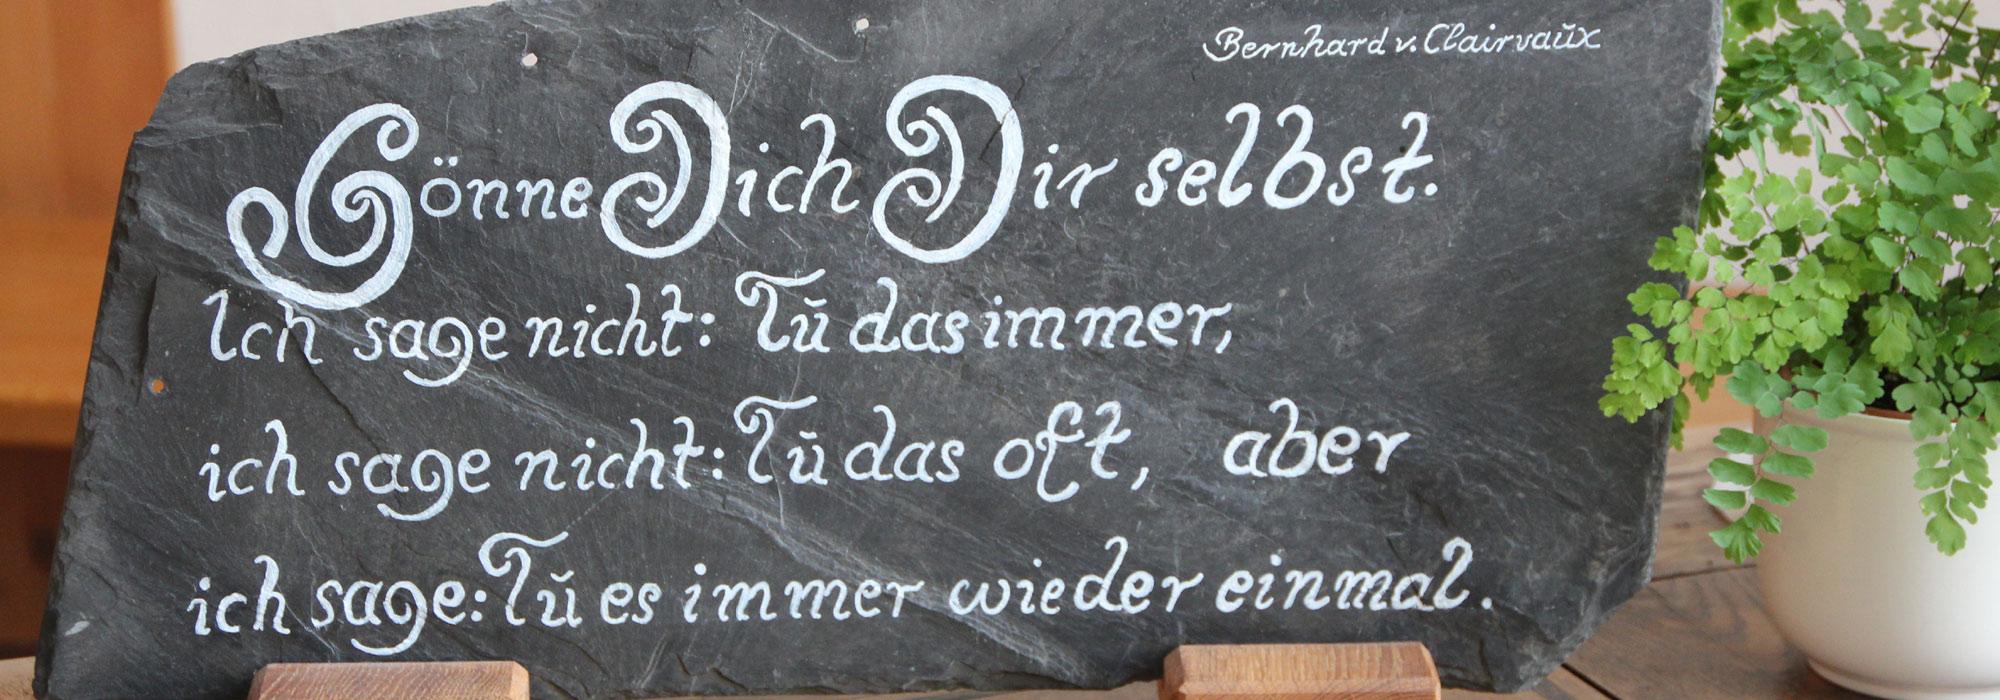 Bernhard v. Clairvaŭx
Gönne Dich Dir selbst.
Ich sage nicht: Tŭ das immer,
ich sage nicht: Tŭ das oft, aber
ich sage: Tŭ es immer wieder einmal.